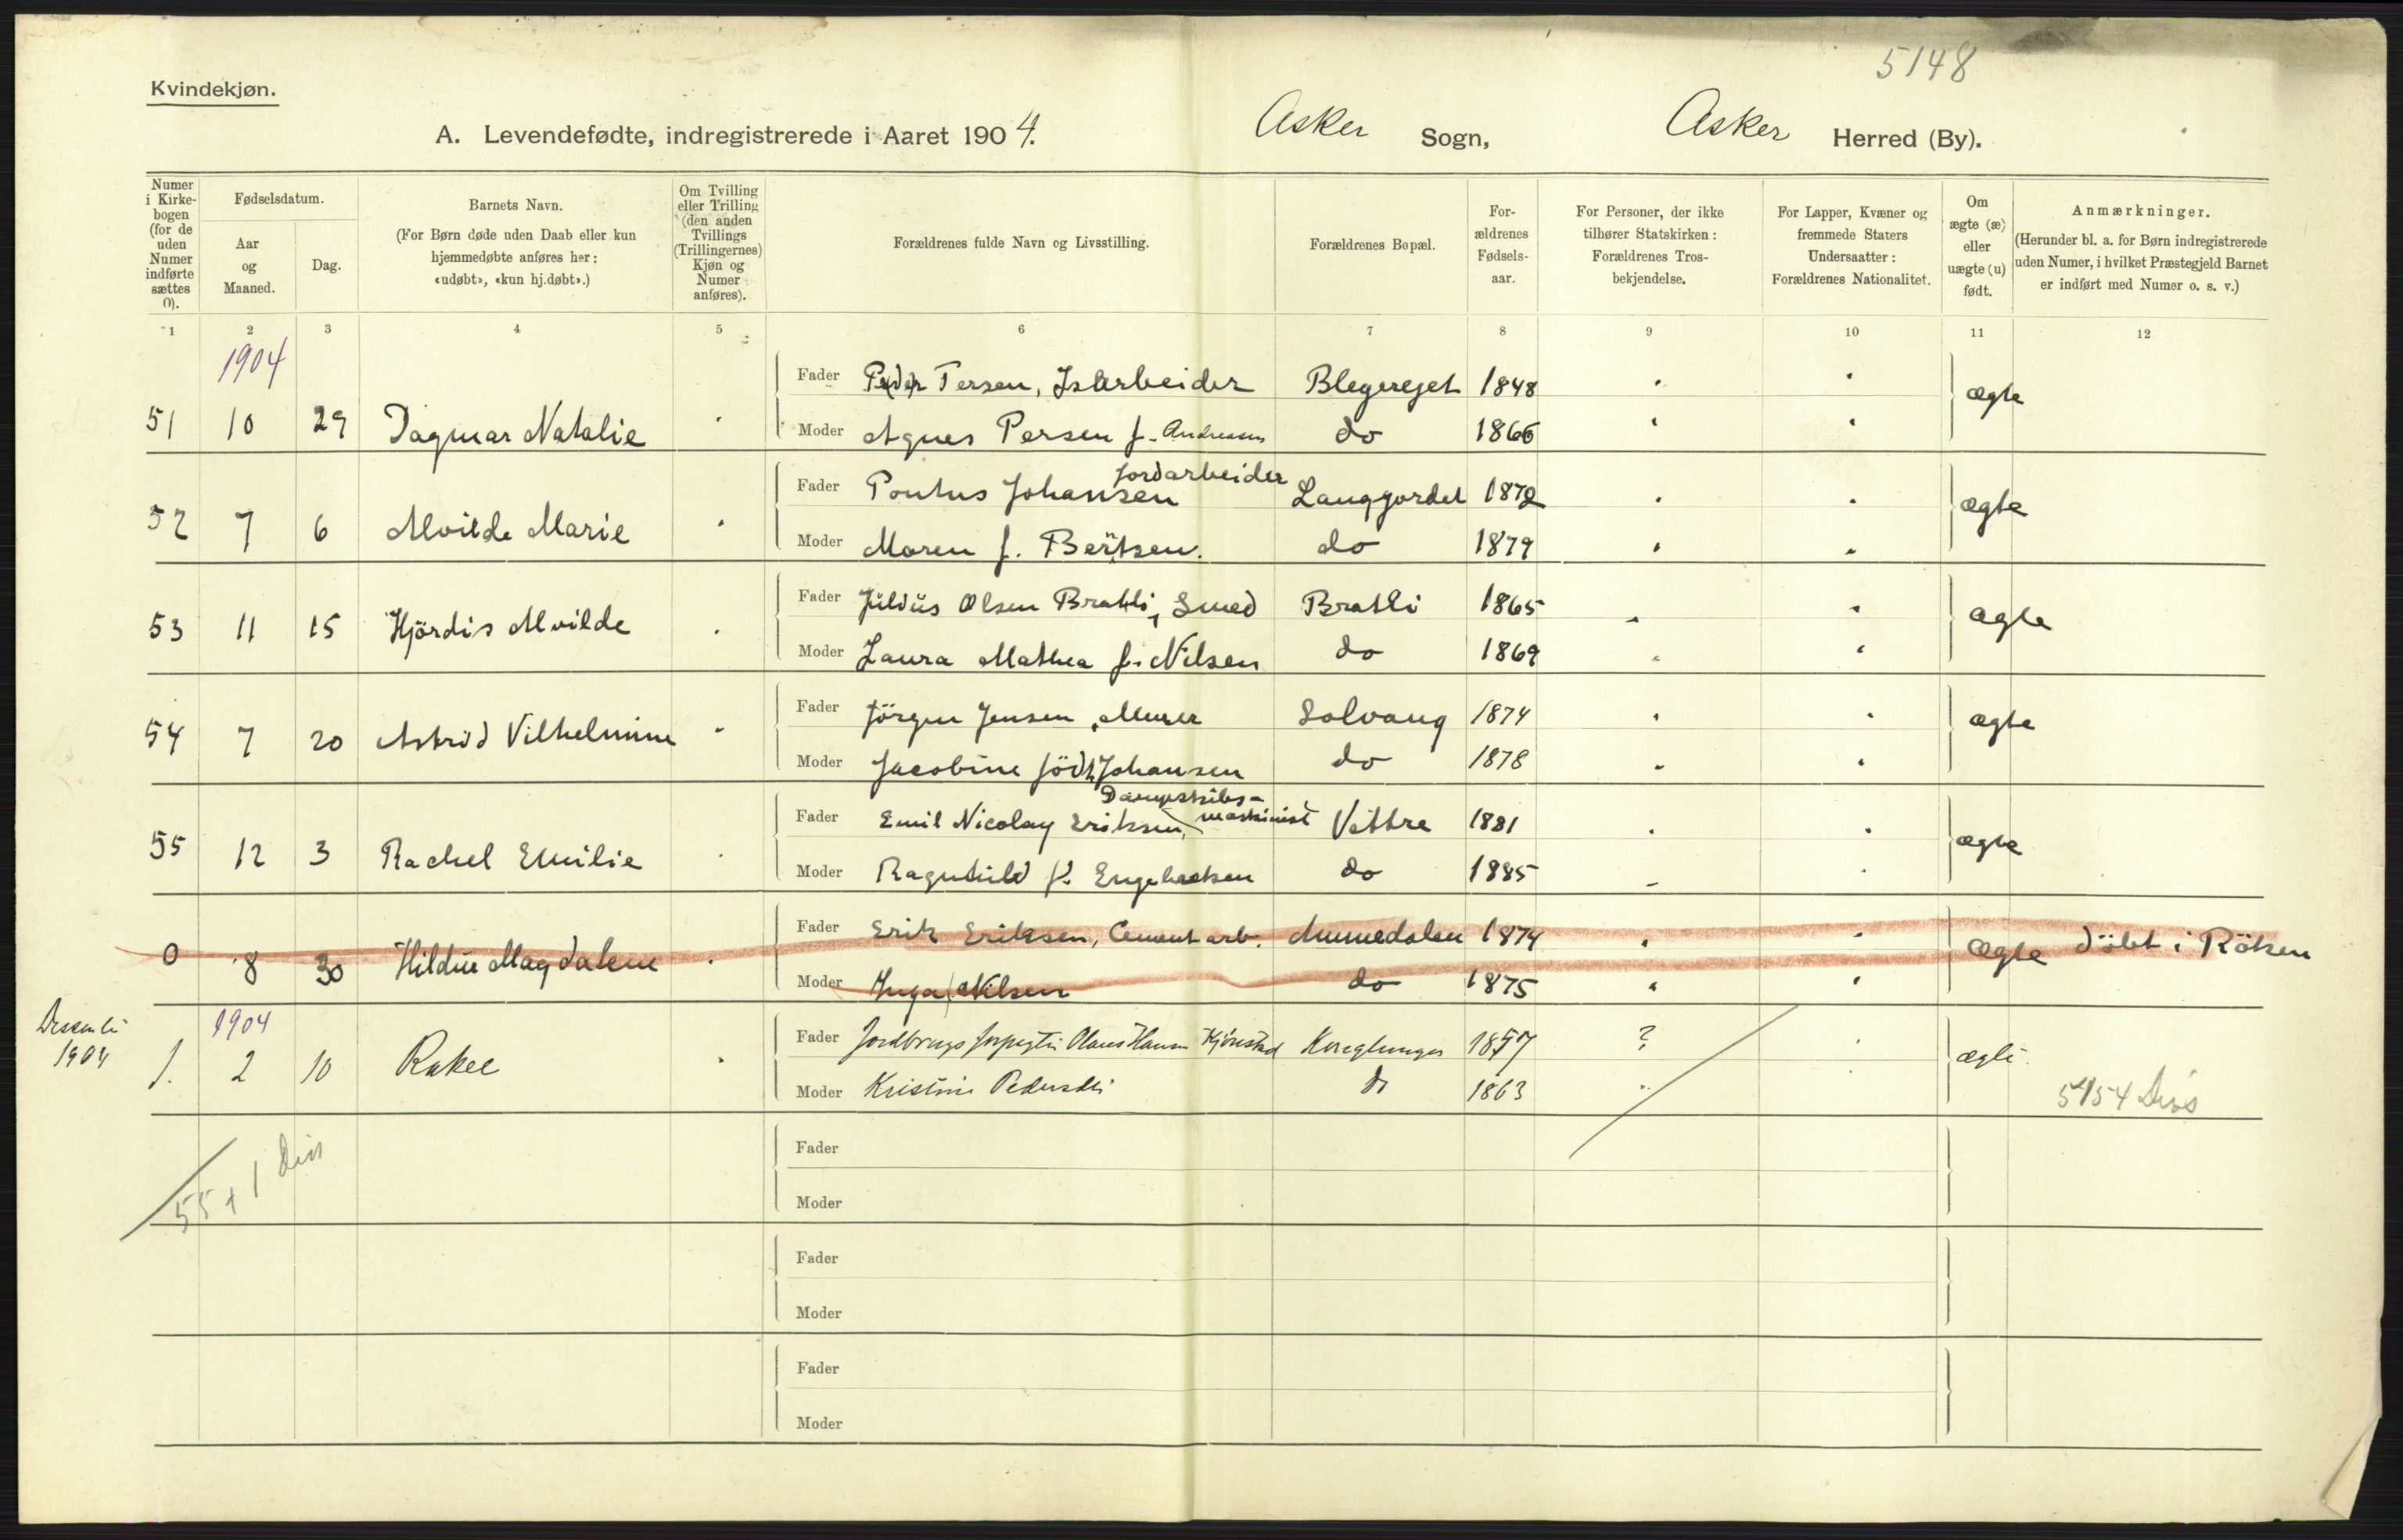 5148
Kvindekjøn.
A. Levendefødte, indregistrerede i Aaret 1904. Asker Sogn, Asker Herred (By).
Numer i Kirke-bogen (for de uden Numer indførte sættes 0).
Fødselsdatum.
Aar og Maaned.
Dag.
Barnets Navn.
(For Børn døde uden Daab eller kun hjemmedøbte anføres her: «udøbt», «kun hj.døbt».)
Om Tvilling eller Trilling (den anden Tvillings (Trillingernes) Kjøn og Numer anføres).
Forældrenes fulde Navn og Livsstilling.
Forældrenes Bopæl.
For-ældrenes Fødsels-aar.
For Personer, der ikke tilhører Statskirken: Forældrenes Tros-bekjendelse.
For Lapper, Kvæner og fremmede Staters Undersaatter: Forældrenes Nationalitet.
Om ægte (æ) eller uægte (u) født.
Anmærkninger.
(Herunder bl. a. for Børn indregistrerede uden Numer, i hvilket Præstegjeld Barnet er indført med Numer o. s. v.)
1 2 3 4 5 6 7 8 9 10 11 12
1904
Fader Peder Persen, Isarbeider Blegereget 1848 ægte
51 10 29 Dagmar Natalie Moder Agnes Persen f. Andreasen do 1866
Fader Pontus Johansen Jordarbeider Langgordet 1872 ægte
52 7 6 Alvilde Marie Moder Maren f. Bertsen. do 1879
Fader Julius Olsen Bratli, Smed Bratli 1865 ægte
53 11 15 Hjördis Alvilde Moder Laura Mathea f. Nilsen do 1869
Fader Jörgen Jensen, Murer Solvang 1874 ægte
54 7 20 Astrid Vilhelmine Moder Jacobine födt Johansen do 1878
Fader Emil Nicolay Eriksen, Dampskibs-maskinist Vettre 1881 ægte
55 12 3 Rachel Emilie Moder Ragnhild f. Engebretsen do 1885
Fader Erik Eriksen, Cementarb. 1874 ægte döbt i Röken
0 8 30 Hildur Magdalene Moder Inga Nilsen do 1875
1904
1904 Fader Jordbrugsforpagter Olaus Hansen 1857 ? ægte
1. 2 10 Rakel Moder Kristine do 1863
5154 Diss
55 + 1 Diss
Fader
Moder
Fader
Moder
Fader
Moder